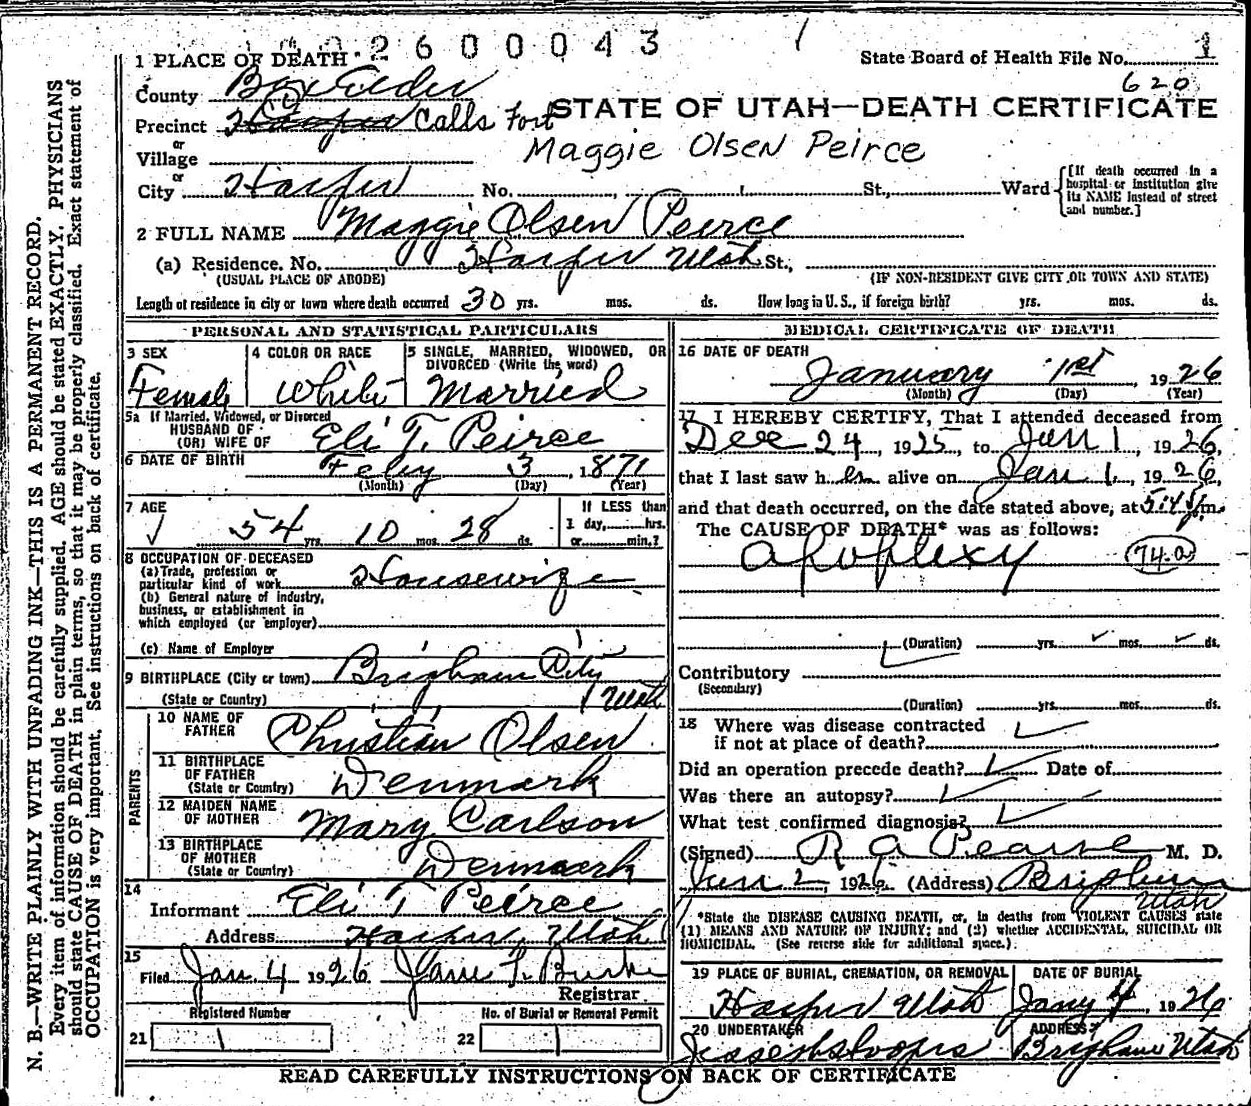 2600043 1
1 PLACE OF DEATH State Board of Health File No. 1
County Box Elder 620
STATE OF UTAH—DEATH CERTIFICATE
Precinct Harper Calls Fort
or
Village
Maggie Olsen Peirce
or
City Harper No. St., Ward
[If death occurred in a hospital or institution give its NAME instead of street and number.]
2 FULL NAME Maggie Olsen Peirce
(a) Residence. No. Harper Utah St.,
(USUAL PLACE OF ABODE) (IF NON-RESIDENT GIVE CITY OR TOWN AND STATE)
Length of residence in city or town where death occurred 30 yrs. mos. ds. How long in U.S., if foreign birth? yrs. mos. ds.
PERSONAL AND STATISTICAL PARTICULARS
3 SEX 4 COLOR OR RACE 5 SINGLE, MARRIED, WIDOWED, OR
DIVORCED (Write the word)
Female White Married
5a If Married, Widowed, or Divorced
HUSBAND OF
(OR) WIFE OF Eli T. Peirce
6 DATE OF BIRTH Feby 3, 1871
(Month) (Day) (Year)
7 AGE If LESS than
54 yrs. 10 mos. 28 ds. 1 day, hrs.
or min.?
8 OCCUPATION OF DECEASED
(a) Trade, profession or
particular kind of work Housewife
(b) General nature of industry,
business, or establishment in
which employed (or employer)
(c) Name of Employer
9 BIRTHPLACE (City or town) Brigham City
(State or Country) Utah
PARENTS
10 NAME OF
FATHER Christian Olsen
11 BIRTHPLACE
OF FATHER
(State or Country) Denmark
12 MAIDEN NAME
OF MOTHER Mary Carlson
13 BIRTHPLACE
OF MOTHER
(State or Country) Denmark
14
Informant Eli T Peirce
Address Harper, Utah
15
Filed Jan. 4 1926
Registrar
Registered Number No. of Burial or Removal Permit
21 22
MEDICAL CERTIFICATE OF DEATH
16 DATE OF DEATH
January 1st, 1926
(Month) (Day) (Year)
17 I HEREBY CERTIFY, That I attended deceased from
Dec 24, 1925, to Jan 1, 1926,
that I last saw her alive on Jan 1, 1926,
and that death occurred, on the date stated above, at m.
The CAUSE OF DEATH* was as follows:
apoplexy 74.a
(Duration) yrs. mos. ds.
Contributory
(Secondary)
(Duration) yrs. mos. ds.
18 Where was disease contracted
if not at place of death?
Did an operation precede death? Date of
Was there an autopsy?
What test confirmed diagnosis?
(Signed) R A Pearse M. D.
Jan 2, 1926 (Address) Brigham
Utah
*State the DISEASE CAUSING DEATH, or, in deaths from VIOLENT CAUSES state
(1) MEANS AND NATURE OF INJURY; and (2) whether ACCIDENTAL, SUICIDAL OR
HOMICIDAL. (See reverse side for additional space.)
19 PLACE OF BURIAL, CREMATION, OR REMOVAL DATE OF BURIAL
Harper Utah Jany 4, 1926
20 UNDERTAKER ADDRESS
Brigham Utah
READ CAREFULLY INSTRUCTIONS ON BACK OF CERTIFICATE
N. B.—WRITE PLAINLY WITH UNFADING INK—THIS IS A PERMANENT RECORD.
Every item of information should be carefully supplied. AGE should be stated EXACTLY. PHYSICIANS
should state CAUSE OF DEATH in plain terms, so that it may be properly classified. Exact statement of
OCCUPATION is very important. See instructions on back of certificate.